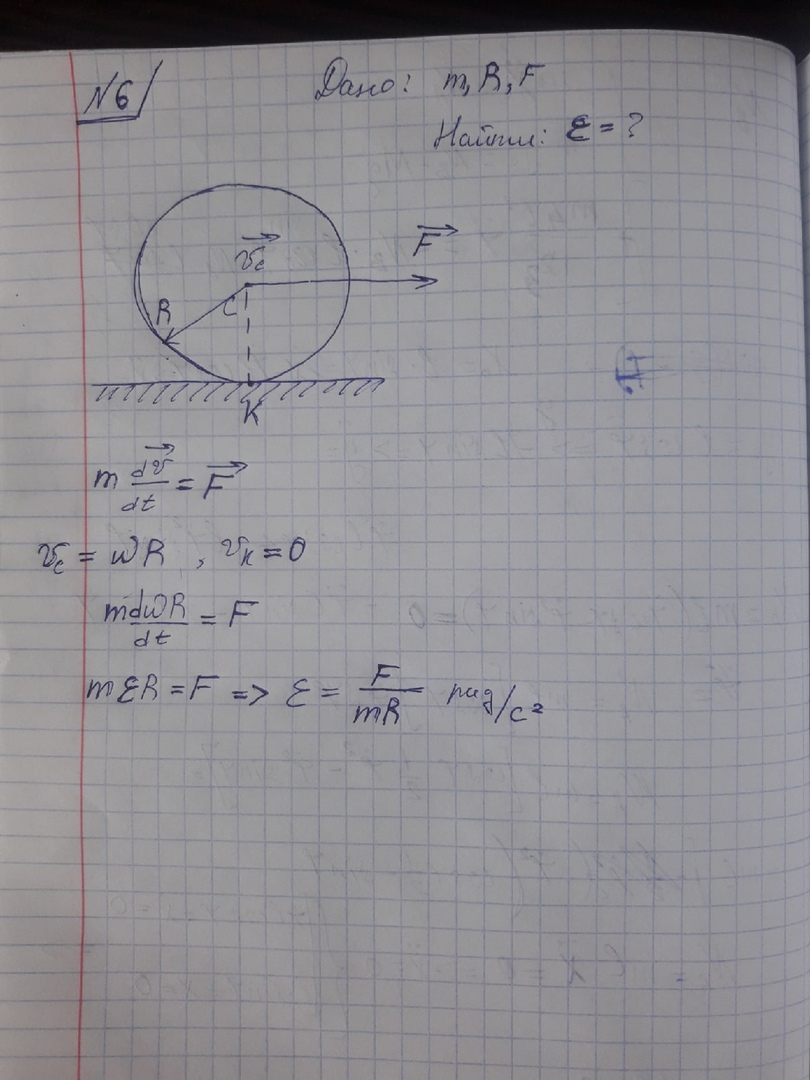 №6
Дано: m, R, F
Найти: ε = ?
v⃗c
F⃗
R
C
K
m dv⃗/dt = F⃗
vc = ωR, vк = 0
mdωR/dt = F
mεR = F => ε = F/mR рад/с²